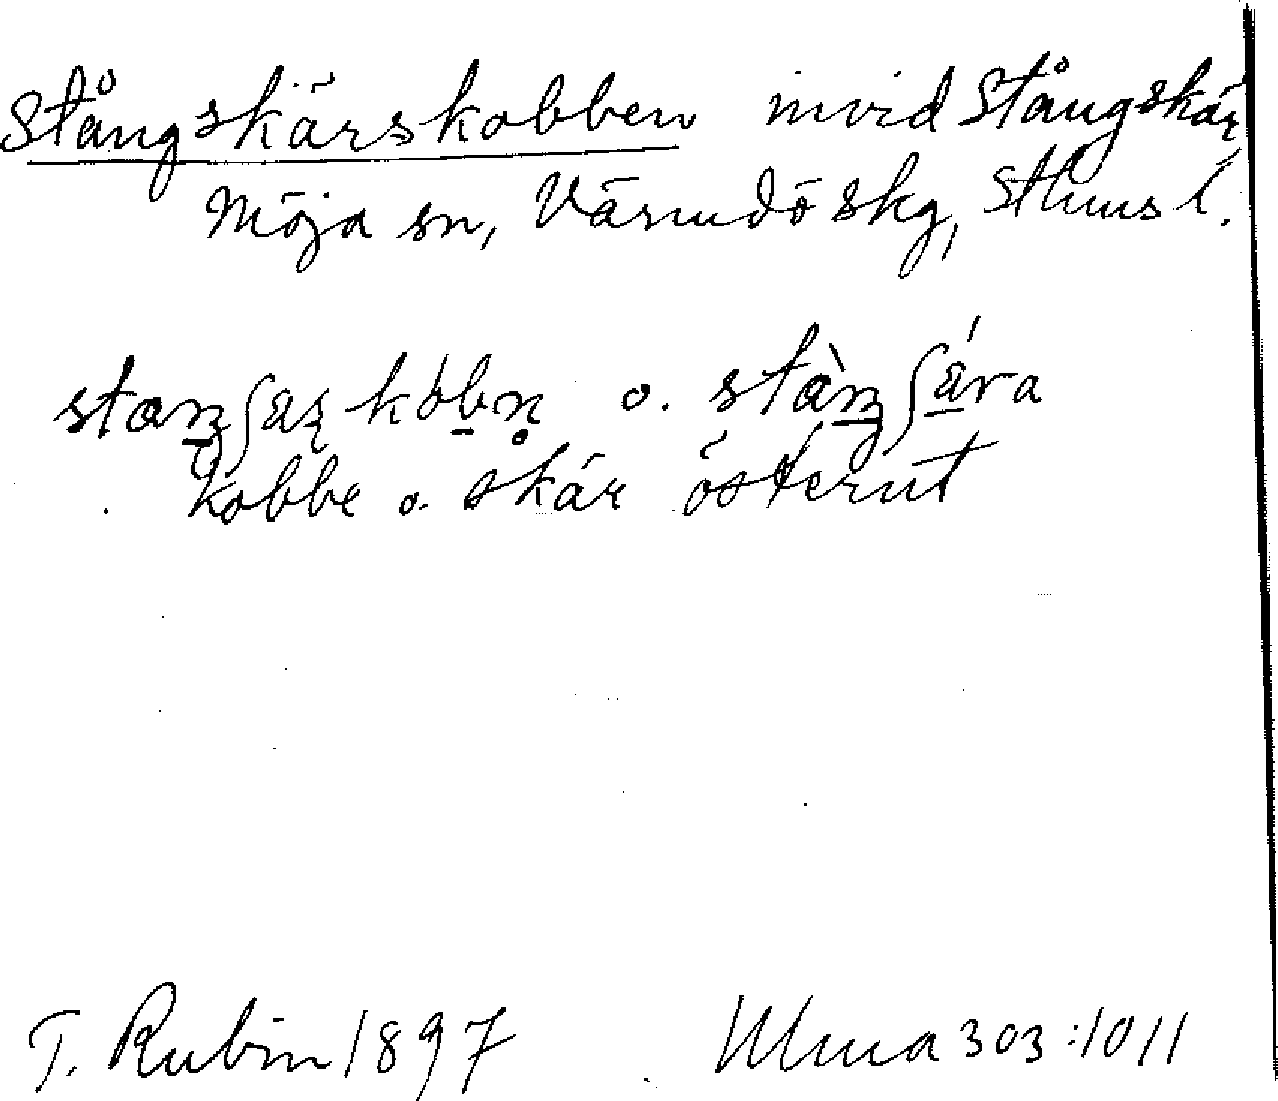 Stångskärskobben invid Stångskär
Möja sn, Värmdö skg, Sthms l.
staŋʃæʂkóbn̥ o. stàŋʃǽra
kobbe o. skär österut
T. Rubin 1897 Ulma 303:1011